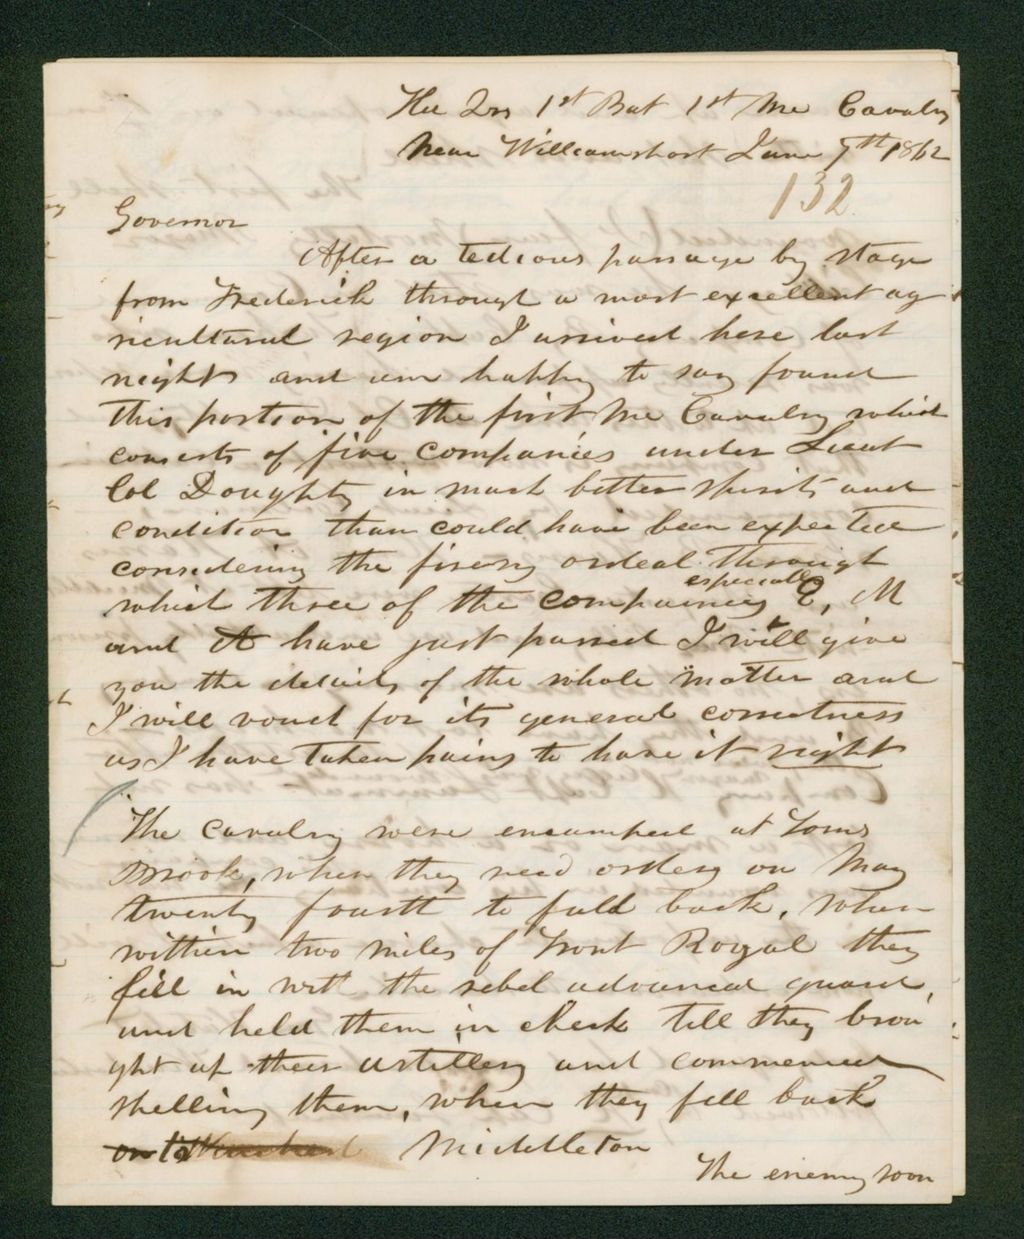 Hd Qrs 1st Bat 1st Me Cavalry
Near Williamsport June 7th 1862
132
Governor
After a tedious passage by stage
from Frederick through a most excellent ag
ricultural region I arrived here last
night and am happy to say found
this portion of the first Me Cavalry which
consists of five companies under Lieut
Col Doughty in much better spirits and
condition than could have been expected
considering the firery ordeal through
which three of the companies especially E, M
and A have just passed I will give
you the details of the whole matter and
I will vouch for its general correctness
as I have taken pains to have it right
The cavalry were encamped at Toms
Brook, when they recd orders on May
twenty fourth to fall back, when
within two miles of Front Royal they
fell in with the rebel advanced guard,
and held them in check till they brou
ght up their artillery and commenced
shelling them, when they fell back
on to Middleton
The enemy soon